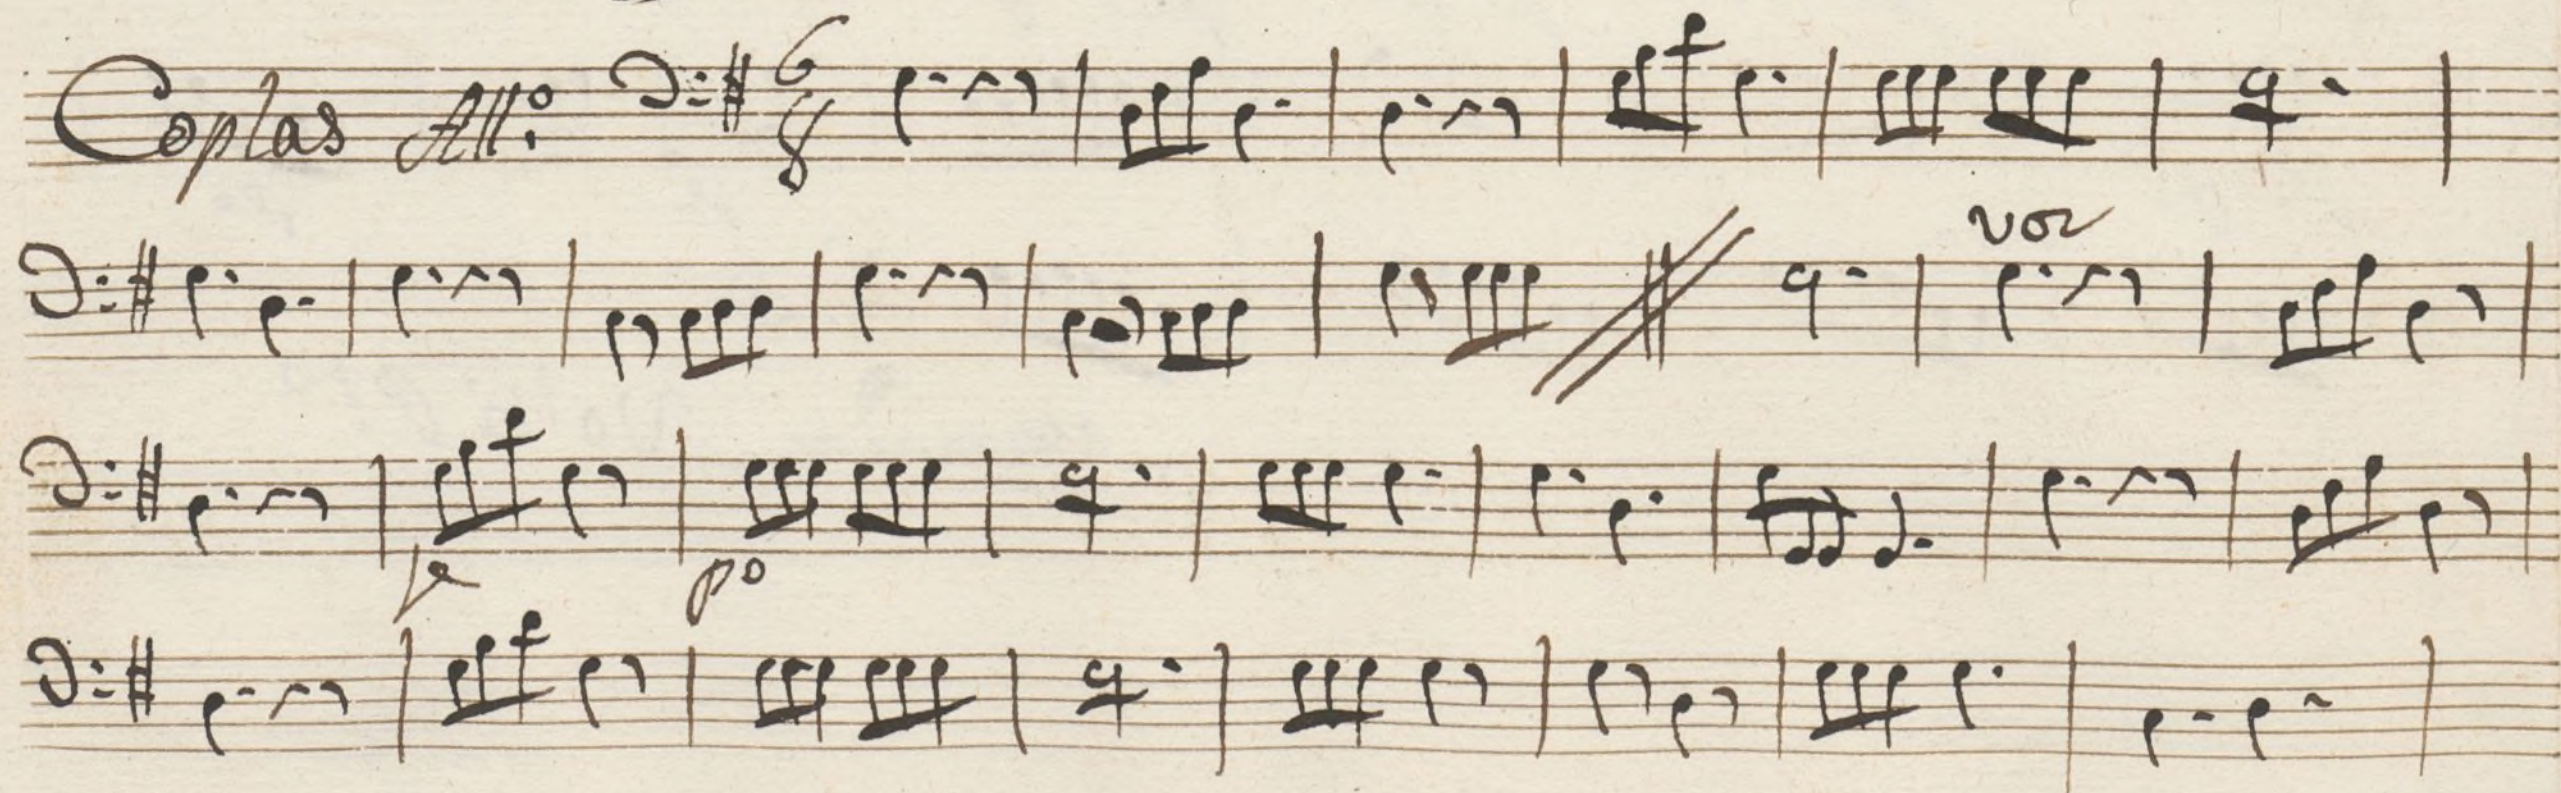 Coplas All.º 6 8
voz
fe po